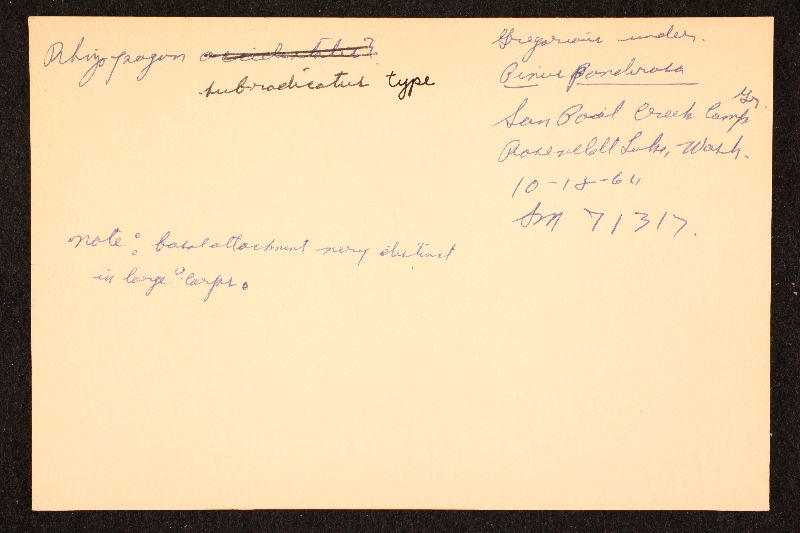 Rhizopogon
subradicatus type
Gregarious under
Pinus ponderosa
San Poil Creek Camp Gr.
Rosevelelt Lake, Wash.
10-18-64
SM 71317.
note: basal attachment very distinct
in large carps.